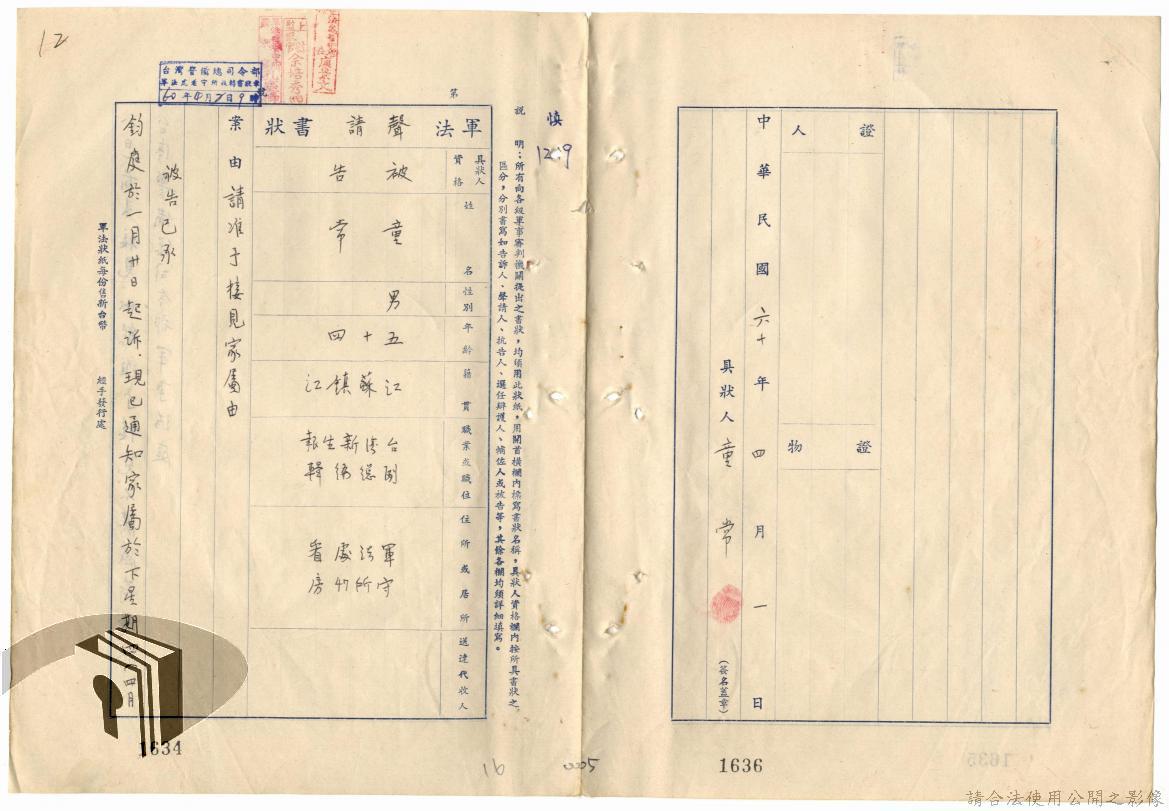 12
台灣警備總司令部
60年4月2日9時
第
號
慎
1219
說明：所有向各級軍事審判機關提出之書狀，均須用此狀紙，用開首橫欄內標寫書狀名稱，具狀人資格欄內按所具書狀之
區分，分別書寫如告訴人、聲請人、抗告人、選任辯護人、輔佐人或被告等，其餘各欄均須詳細填寫。
軍法聲請書狀
具狀人資格
被告
姓名
童常
性別
男
年齡
五十四
籍貫
江蘇鎮江
職業或職位
台灣新生報
副總編輯
住所或居所
軍法處看
守所47房
送達代收人
案由 請准于接見家屬由
被告已承
鈞庭於一月廿日起訴．現已通知家屬於下星期四（四月
軍法狀紙每份售新台幣
經手發行處
1634
16
0005
證人
證物
中華民國六十年四月一日
具狀人 童常
（簽名蓋章）
1636
1635
請合法使用公開之影像